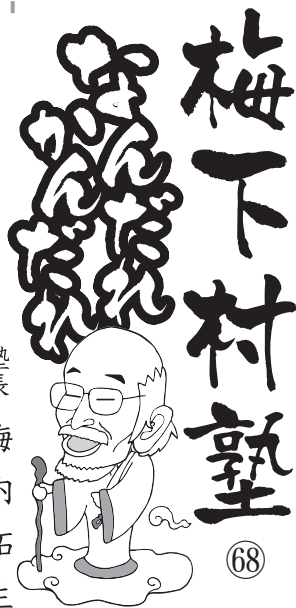 梅下村塾
68
なんだれ
かんだれ
塾長 梅内拓三